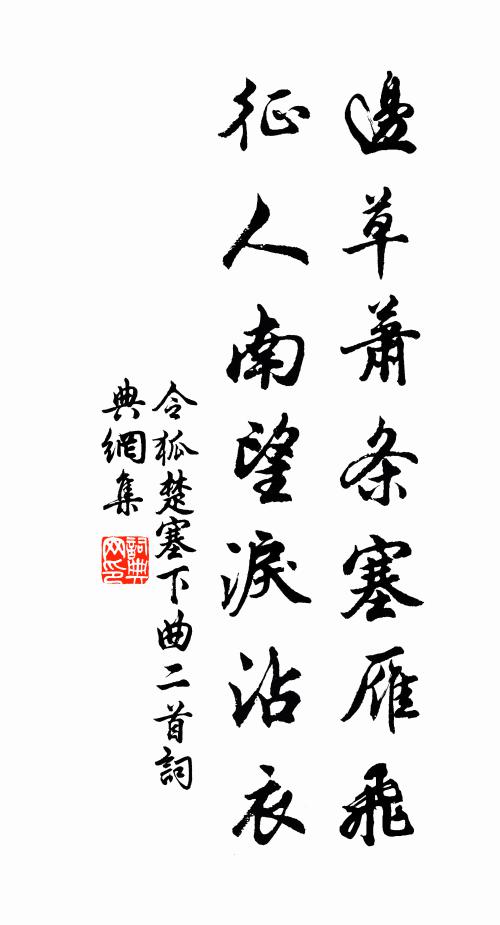 邊草蕭条塞雁飛
征人南望淚沾衣
令狐楚塞下曲二首詞
典網集
詞典
网印